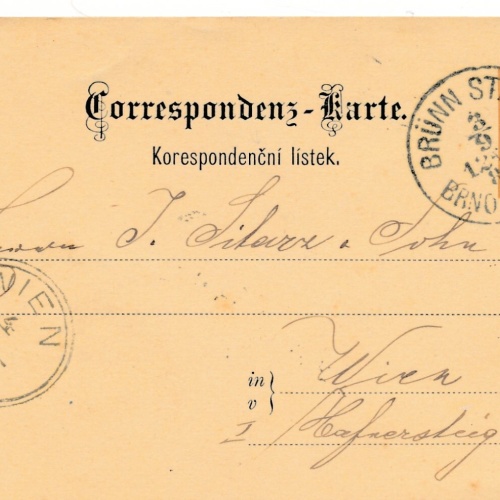 Correspondenz-Karte.
Korespondenční lístek.
BRÜNN ST
BRNO
J. Sitarz & Sohn
WIEN
in Wien
v
I Hafnersteig